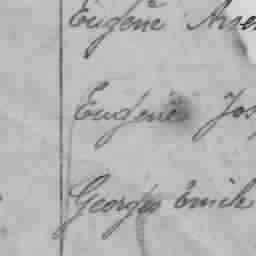 Eugène Arse
Eugène Jos
Georges Emile